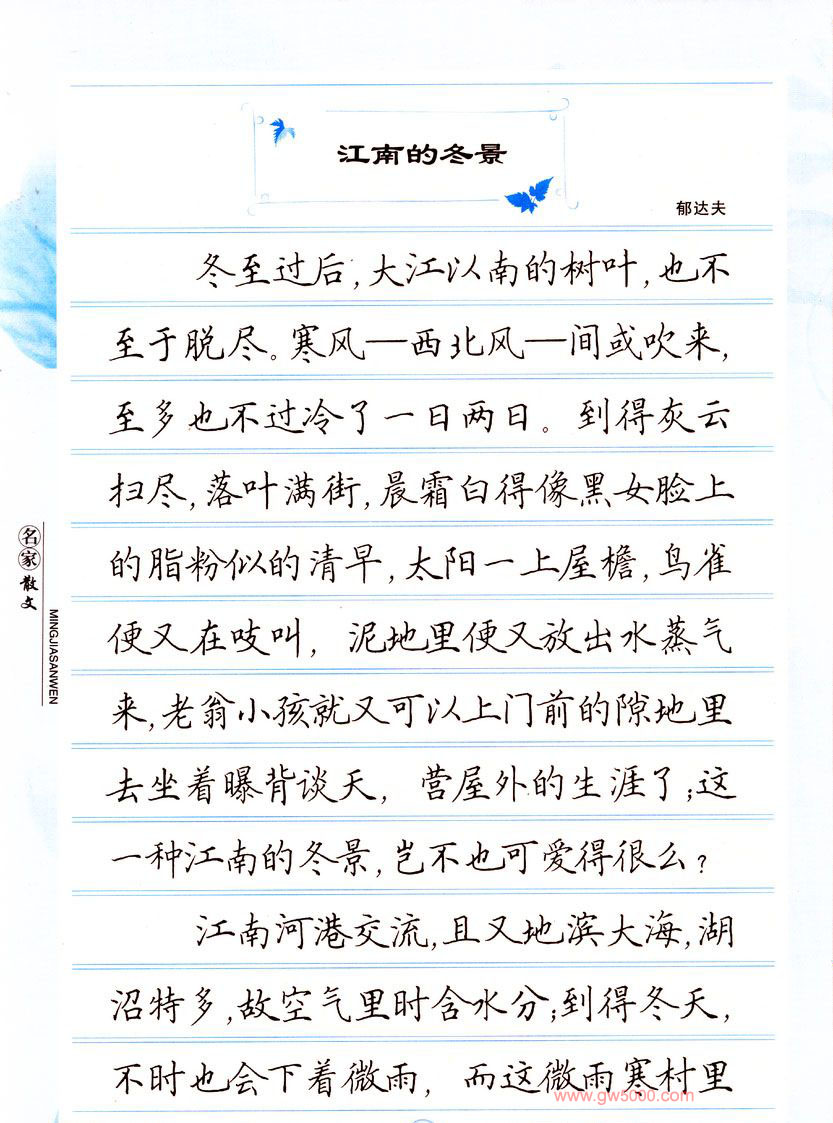 江南的冬景
郁达夫
冬至过后,大江以南的树叶,也不
至于脱尽。寒风—西北风—间或吹来,
至多也不过冷了一日两日。到得灰云
扫尽,落叶满街,晨霜白得像黑女脸上
的脂粉似的清早,太阳一上屋檐,鸟雀
便又在吱叫,泥地里便又放出水蒸气
来,老翁小孩就又可以上门前的隙地里
去坐着曝背谈天,营屋外的生涯了;这
一种江南的冬景,岂不也可爱得很么?
江南河港交流,且又地滨大海,湖
沼特多,故空气里时含水分;到得冬天,
不时也会下着微雨,而这微雨寒村里
名家散文
MINGJIASANWEN
www.gw5000.com